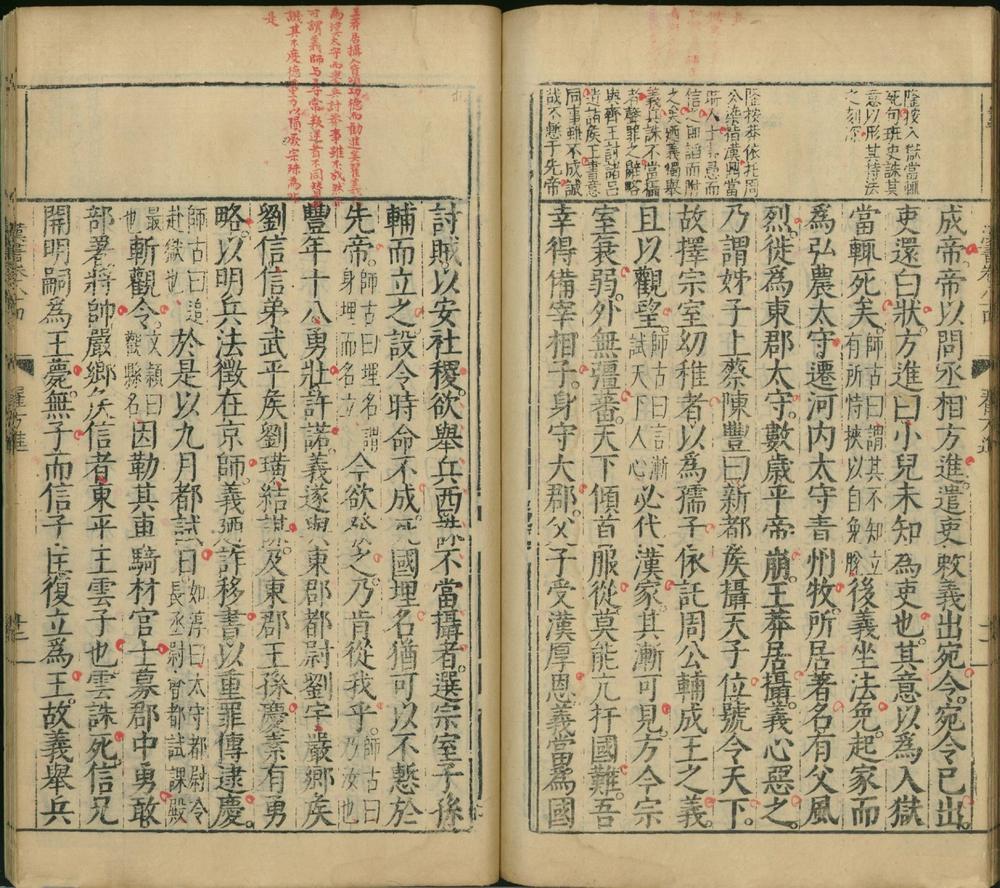 隆按入獄當輒
死句班史誅其
意以形其恃法
之刻深
隆按莽依托周
公塗
信
之矣廼義獨舉
義兵誅不當攝
者聲罪之辭略
與齊王討諸呂
遺諸侯王書意
同事雖不成誠
哉不慙于先帝
成帝帝以問丞相方進遣吏敕義出宛令宛令已出
吏還白狀方進曰小兒未知為吏也其意以為入獄
當輒死矣師古曰謂其不知立有所恃挾以自免脫後義坐法免起家而
為弘農太守遷河內太守青州牧所居著名有父風
烈徙為東郡太守數歲平帝崩王莽居攝義心惡之
乃謂姊子上蔡陳豐曰新都侯攝天子位號令天下
故擇宗室幼稚者以為孺子依託周公輔成王之義
且以觀望師古曰言漸試天下人心必代漢家其漸可見方今宗
室衰弱外無彊蕃天下傾首服從莫能亢扞國難吾
幸得備宰相子身守大郡父子受漢厚恩義當為國
王莽居攝
為漢太守而舉兵討莽事雖不成然
可謂義師與尋常叛逆者不同
是
討賊以安社稷欲舉兵西誅不當攝者選宗室子孫
輔而立之設令時命不成死國埋名猶可以不慙於
先帝師古曰埋名謂身埋而名立今欲發之乃肯從我乎師古曰乃汝也
豐年十八勇壯許諾義遂與東郡都尉劉宇嚴鄉侯
劉信信弟武平侯劉璜結謀及東郡王孫慶素有勇
略以明兵法徵在京師義廼詐移書以重罪傳逮慶
師古曰追赴獄也於是以九月都試日如淳曰太守都尉令長丞尉會都試課殿
最也斬觀令文穎曰觀縣名因勒其車騎材官士募郡中勇敢
部署將帥嚴鄉侯信者東平王雲子也雲誅死信兄
開明嗣為王薨無子而信子匡復立為王故義舉兵